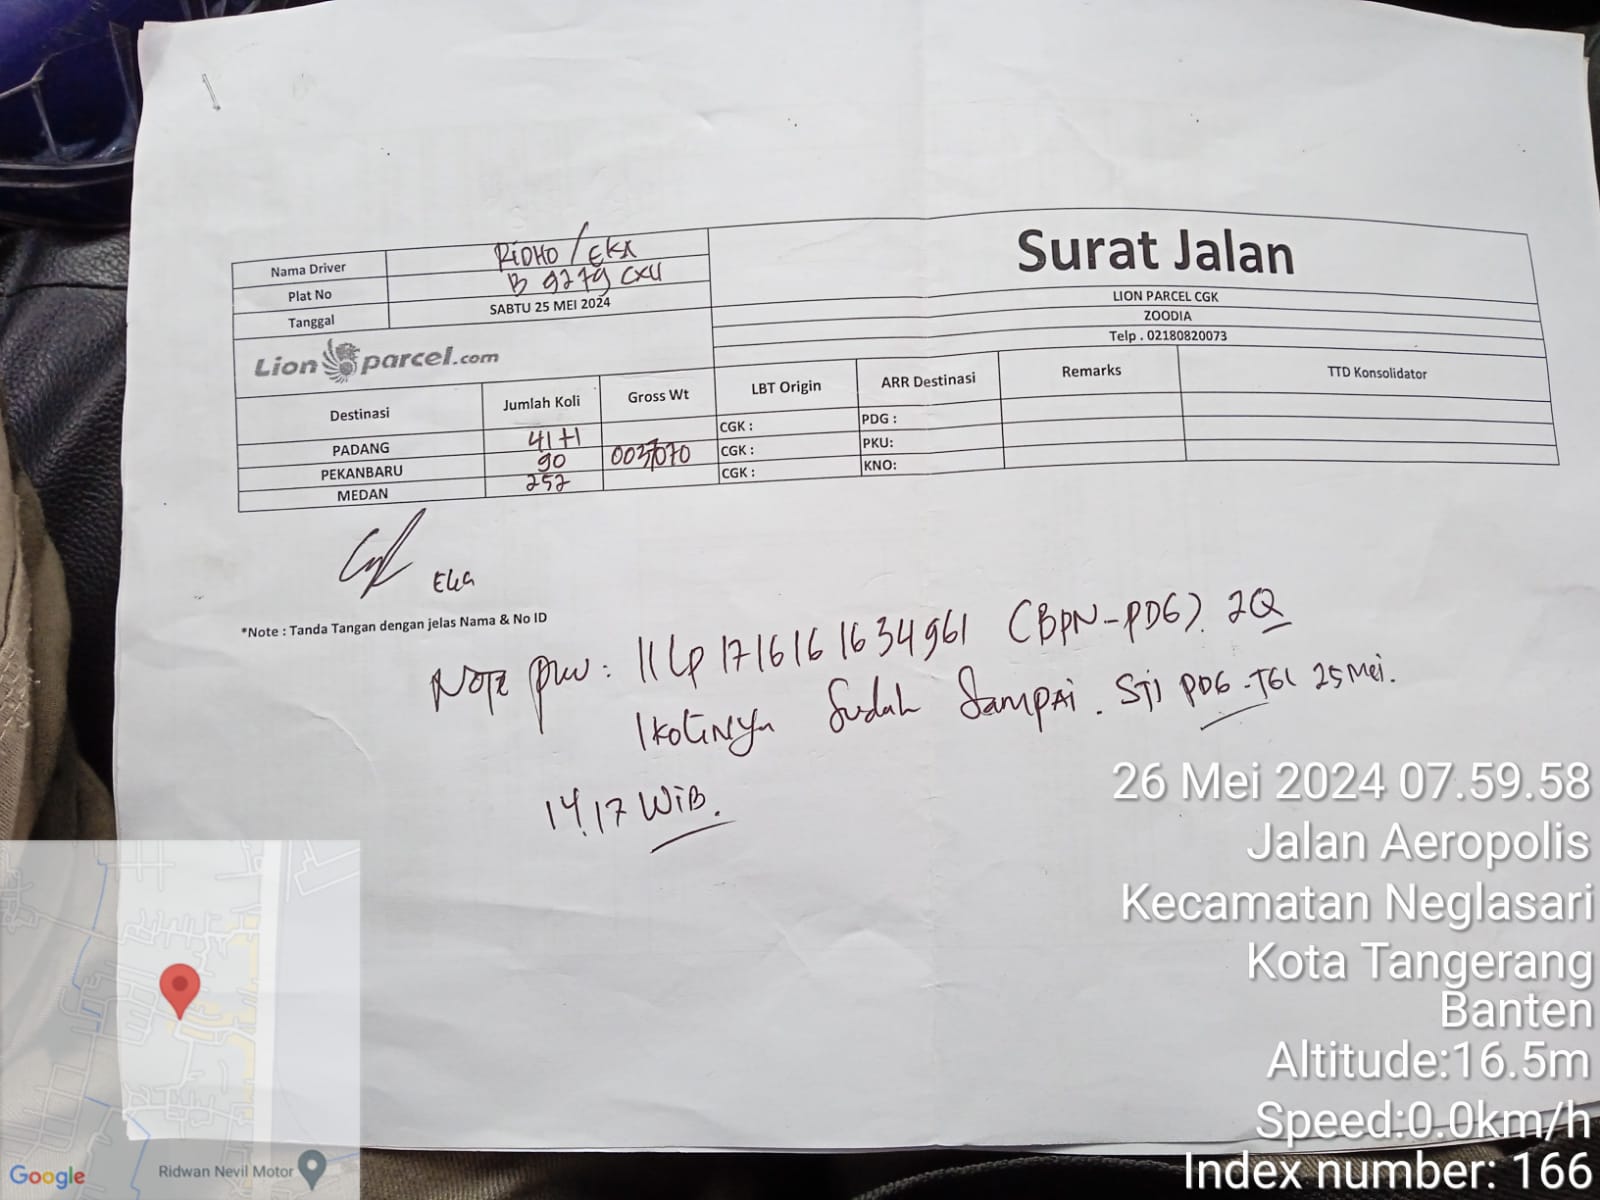 Nama Driver RiDHO / EKA
Plat No B 9279 CXU
Tanggal SABTU 25 MEI 2024
Surat Jalan
LION PARCEL CGK
ZOODIA
Telp . 02180820073
Lion parcel.com
Destinasi Jumlah Koli Gross Wt LBT Origin ARR Destinasi Remarks TTD Konsolidator
PADANG 41+1 CGK : PDG :
PEKANBARU 90 003/070 CGK : PKU:
MEDAN 252 CGK : KNO:
Eka
*Note : Tanda Tangan dengan jelas Nama & No ID
Note : 11LP1716161634961 (BPN-PDG). 2Q
1kolinya Sudah Sampai. STI PDG-TGL 25 Mei.
14.17 WiB.
26 Mei 2024 07.59.58
Jalan Aeropolis
Kecamatan Neglasari
Kota Tangerang
Banten
Altitude:16.5m
Speed:0.0km/h
Index number: 166
Google
Ridwan Nevil Motor